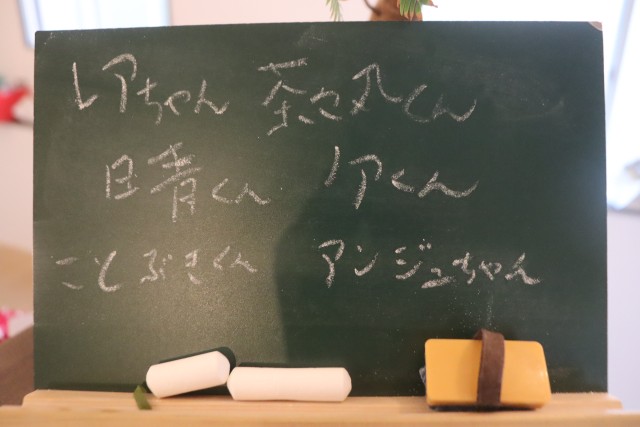 レアちゃん 茶々丸くん
晴くん ノアくん
ことぶきくん アンジュちゃん